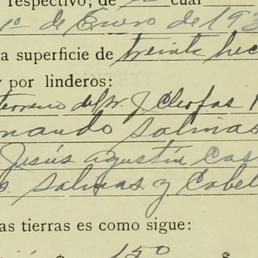 respectivo; de cual
1º de Enero de 193
a superficie de treinta hec
y por linderos:
terreno del Sr. J. Cleofas
nando Salinas
Jesús Agustín Cas
s Salinas y Cabel
as tierras es como sigue:
150